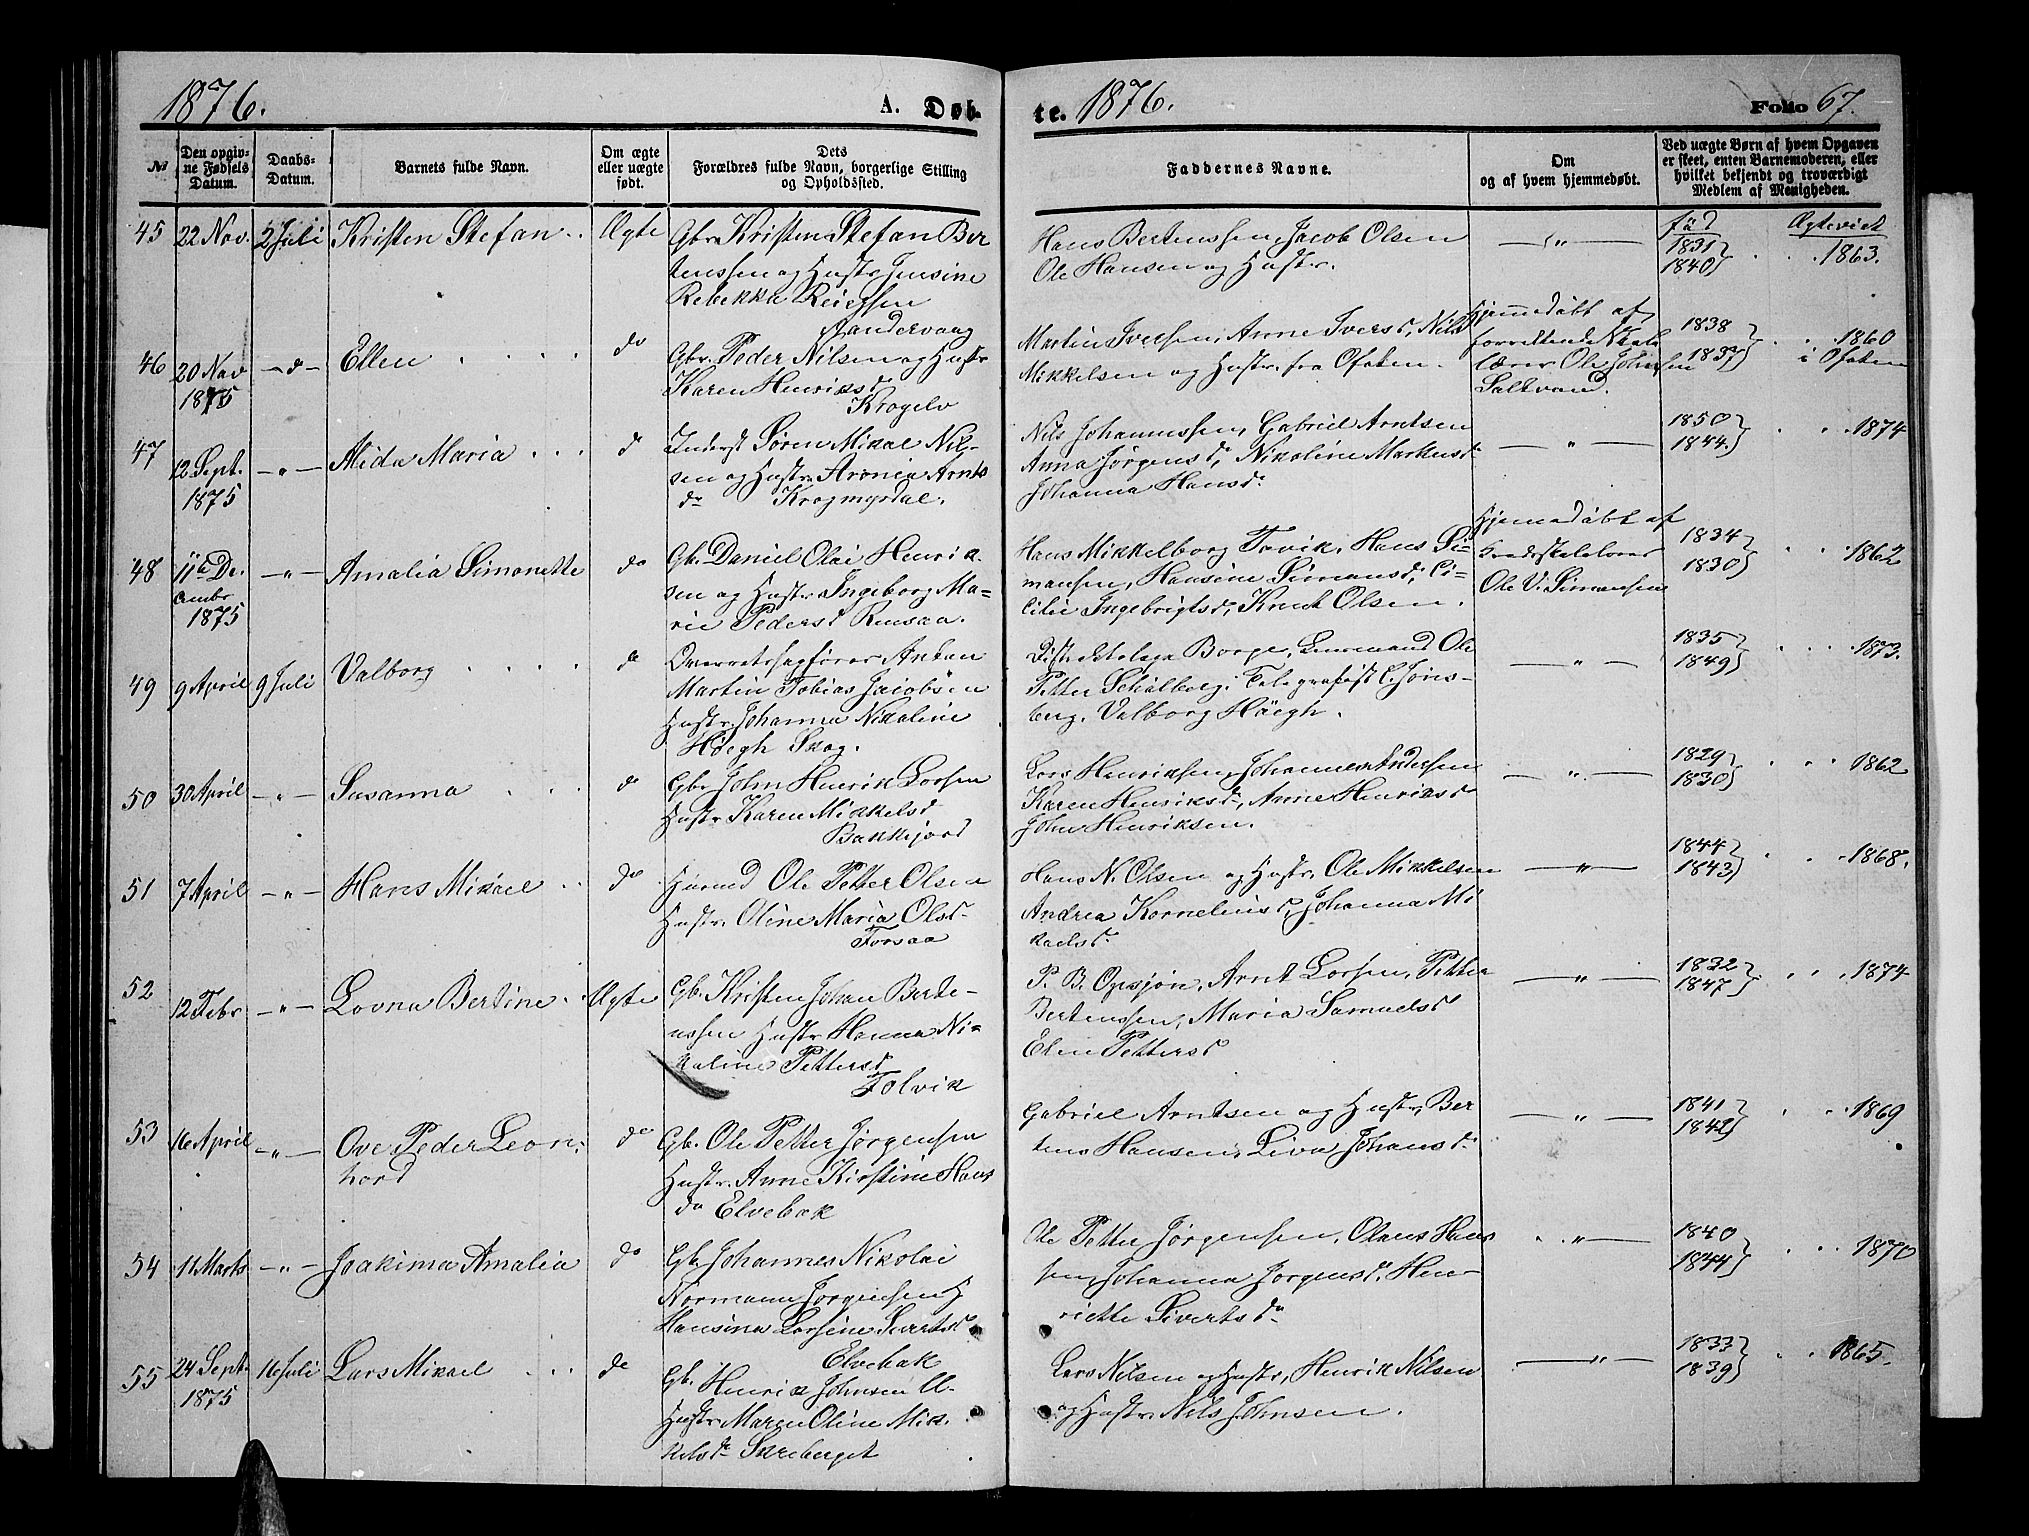 1876.
A. Døb-
te. 1876.
Folio 67.
No
Den opgiv-
ne Fødsels
Datum.
Daabs-
Datum.
Barnets fulde Navn.
Om ægte
eller uægte
født.
Dets
Forældres fulde Navn, borgerlige Stilling
og Opholdssted.
Faddernes Navne.
Om
og af hvem hjemmedøbt.
Ved uægte Børn af hvem Opgaven
er skeet, enten Barnemoderen, eller
hvilket bekjendt og troværdigt
Medlem af Menigheden.
45 22 Nov. 2 Juli Kristen Stefan Ægte
Gbr. Kristen Stefan Ber
tenssen og Hustr. Jensine
Rebekka
Sandervaag
Hans Bertenssen, Jacob Olsen
Ole Hansen og Hustr.
— " —
fød
1831
1840
Ægteviet
1863.
46 20 Nov
1875
— d — Ellen do
Gbr. Peder Nilsen og Hustr
Karen Henriksd
Krogelv
Martin Iversen, Anne Iversd, Nils
Mikkelsen og Hustr. fra Ofoten.
Hjemmedøbt af
forrettende Skole
lærer Ole Johnsen
Saltvand.
1838
1837
1860
i Ofoten
47 12 Sept.
1875
— " — Alida Maria d
Inderst Søren Mikal Nil-
sen og Hustr. Aronia Arnts
dr Krogmyrdal.
Nils Johannessen, Gabriel Arntsen
Anna Jørgensd, Nikoline Markusd
Johanna Hansd.
— " —
1850
1844.
1874
48 11te De-
cembr
1875
— " — Amalia Simonette do
Gb. Daniel Olai Henrik-
sen og Hustr. Ingeborg Ma-
rie Pedersd
Hans Mikkelborg Torvik, Hans Si-
monsen, Hansine Simonsd, Ci-
cilie Ingebrigtsd, Knut Olsen.
Hjemmedøbt af
Ole V. Simonsen
1834
1830
1862
49 9 April 9 Juli Valborg do
Overretssagfører Anton
Martin Tobias Jacobsen
Hustr. Johanna Nikoline
Høegh Skog.
Borge, Lensmand Ole
Petter Schølberg, Telegrafist C. Jøns-
berg, Valborg Höegh.
— " —
1835
1849
1873.
50 30 April — " — Susanna d
Gbr. John Henrik Larsen
Hustr. Karen Mikkelsd
Bakkejord
Lars Henriksen, Johannes Andersen
Karen Henriksd, Anne Henriksd
John Henriksen.
— " —
1829
1830
1862
51 7 April — " — Hans Mikael do
Huusmd Ole Petter Olsen
Hustr. Oline Maria Olsd
Forsaa
Hans N. Olsen og Hustr. Ole Mikkelsen
Andrea Korneliusd, Johanna Mi
kaelsd.
— " —
1844
1843
1868.
52 12 Febr. — " — Lovna Bertine Ægte
Gb. Kristen Johan Berte-
nssen Hustr. Hanna Ni-
koline Pettersd
Tolvik
P. B. Opsjøn, Arnt Larsen, Petter
Bertenssen, Maria Samuelsd
Elen Pettersd
— " —
1832
1847
1874
53 16 April — " — Ove Peder Leon-
hard
do
Gb. Ole Petter Jørgensen
Hustr. Anne Kirstine Hans
dr Elvebak
Gabriel Arntsen og Hustr, Ber
tens Hansen, Liva Johansd.
— " —
1841
1842
1869
54 11 Marts — " — Joakima Amalia do
Gb. Johannes Nikolai
Normann Jørgensen H
Hansina Larsine Sivertsd
Elvebak
Ole Petter Jørgensen, Olaus Han
sen, Johanna Jørgensd, Hen-
riette Sivertsd.
— " —
1840
1844
1870
55 24 Sept.
1875
16 Juli Lars Mikael do
Gb. Henrik Johnsen U.
Hustr. Maren Oline Mik
kelsd. Skreberget
Lars Nilsen og Hustr, Henrik Nilsen
og Hustr. Nils Johnsen.
— " —
1833
1839
1865.